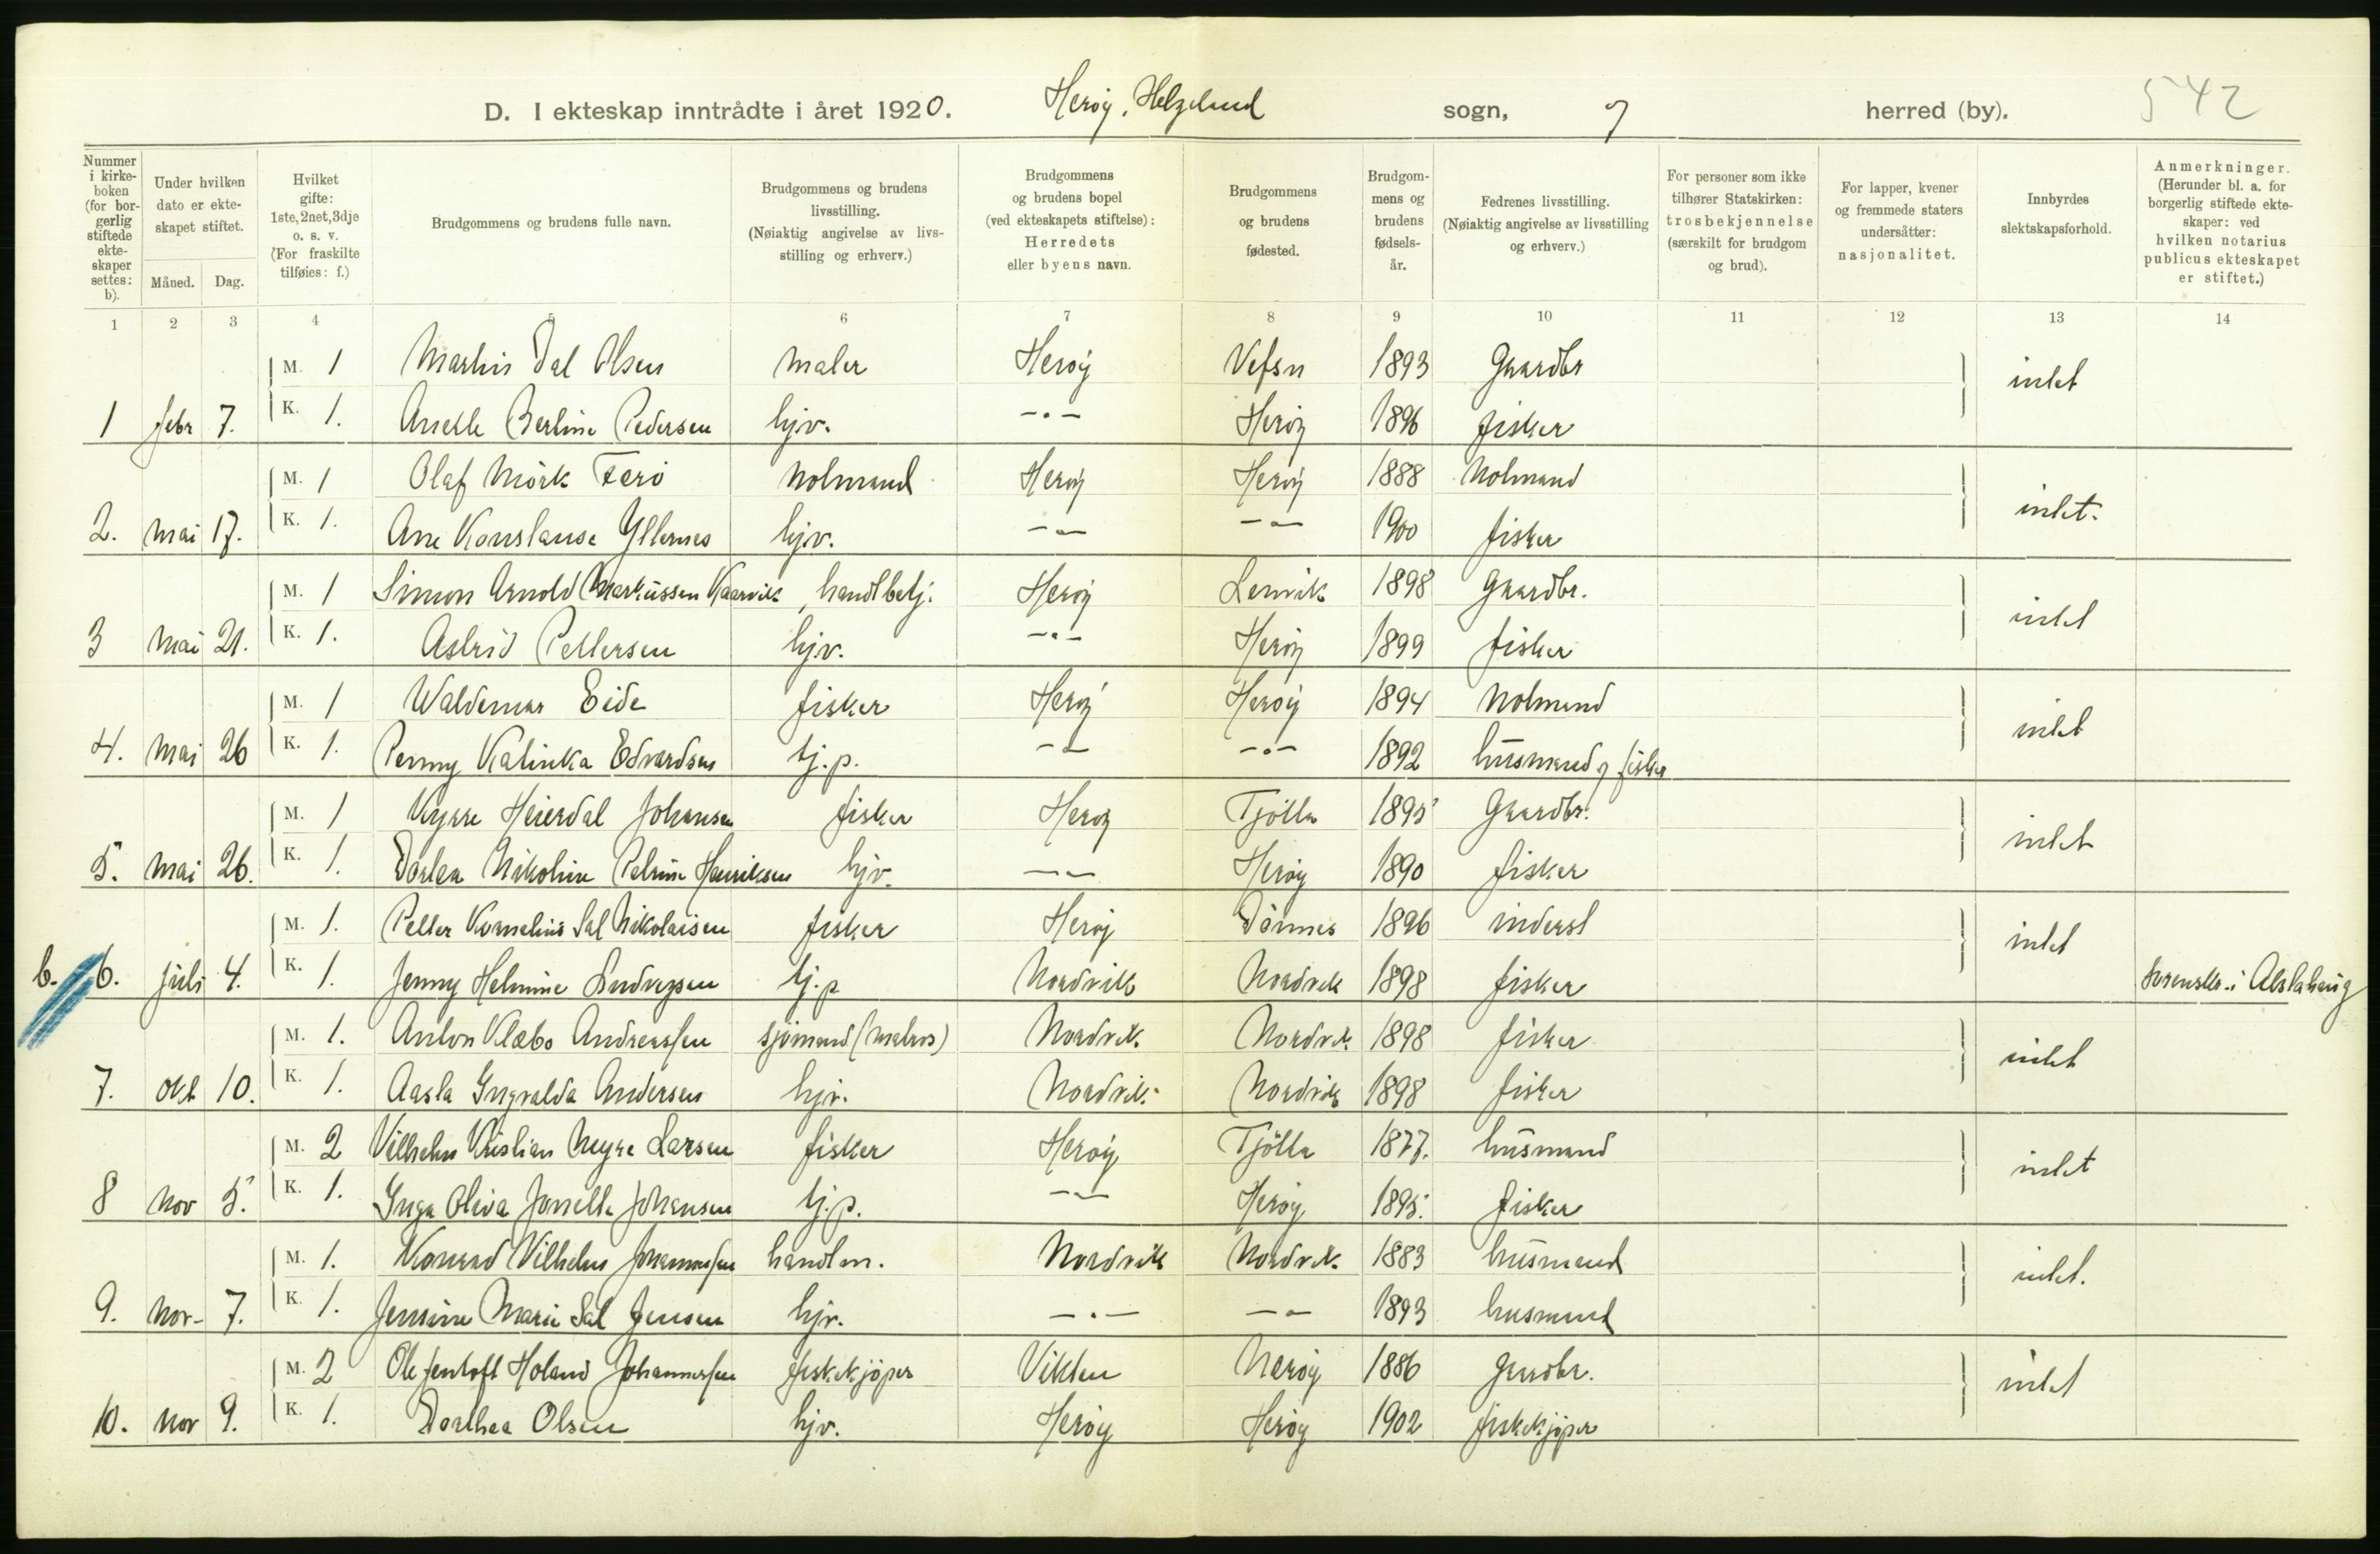 D. I ekteskap inntrådte i året 1920. Herøy, Helgeland sogn, herred (by). 542
Nummer i kirkeboken (for borgerlig stiftede ekteskaper settes: b).
Under hvilken dato er ekteskapet stiftet.
Måned. Dag.
Hvilket gifte: 1ste, 2net, 3dje o. s. v. (For fraskilte tilføies: f.)
Brudgommens og brudens fulle navn.
Brudgommens og brudens livsstilling. (Nøiaktig angivelse av livsstilling og erhverv.)
Brudgommens og brudens bopel (ved ekteskapets stiftelse): Herredets eller byens navn.
Brudgommens og brudens fødested.
Brudgommens og brudens fødselsår.
Fedrenes livsstilling. (Nøiaktig angivelse av livsstilling og erhverv.)
For personer som ikke tilhører Statskirken: trosbekjennelse (særskilt for brudgom og brud).
For lapper, kvener og fremmede staters undersåtter: nasjonalitet.
Innbyrdes slektskapsforhold.
Anmerkninger. (Herunder bl. a. for borgerlig stiftede ekteskaper: ved hvilken notarius publicus ekteskapet er stiftet.)
1 2 3 4 5 6 7 8 9 10 11 12 13 14
M. 1 Dal Olsen maler Herøy Vefsn 1893 Gaardbr intet
1 febr 7. K. 1. Anette Berline Pedersen hjv. -"- Herøy 1896 fisker
M. 1 Olaf Mörk Ferö Notmand Herøy Herøy 1888 Notmand intet.
2. mai 17. K. 1. Ane Konstanse hjv. -"- -"- 1900 fisker
M. 1 Simon Arnold Markussen Kaarvik handlbetj. Herøy Lenvik 1898 Gaardbr. intet
3 mai 21. K. 1. Astrid Pettersen hjv. -"- Herøy 1899 fisker
M. 1 Waldemar Eide fisker Herøy Herøy 1894 Notmand intet
4. mai 26 K. 1. Penny Katinka Edvardsen tj.p. -"- -"- 1892 husmand og fisker
M. 1 Heierdal Johansen fisker Herøy Tjötta 1895 Gaardbr. intet
5. mai 26. K. 1. Dortea Nikoline Petrine Henriksen hjv. -"- Herøy 1890 fisker
M. 1. Petter Kornelius Sal Nikolaisen fisker Herøy Dönnes 1896 inderst intet
b. 6. juli 4. K. 1. Jenny Helmine tj.p Nordvik Nordvik 1898 fisker sorenskr. i Alstahaug
M. 1. Anton Klæbo Andreassen sjömand (matros) Nordvik Nordvik 1898 fisker intet
7. okt 10. K. 1. Aasta Ingvalda Andersen hjv. Nordvik. Nordvik 1898 fisker
M. 2 Vilhelm Kristian Meyre Larsen fisker Herøy Tjötta 1877. husmand intet
8 nov 5. K. 1. Inga Oliva Jonette Johansen tj.p. -"- Herøy 1895. fisker
M. 1. Konrad Vilhelm Johannessen handlm. Nordvik Nordvik 1883 husmand intet.
9. nov- 7. K. 1. Jensine Marie Sal Jensen hjv. -"- -"- 1893 husmand
M. 2 Ole Jentoft Holand Johannessen fiskekjöper Vikten Nærøy 1886 gaardbr. intet
10. nov 9. K. 1. Dorthea Olsen hjv. Herøy Herøy 1902 fiskekjöper